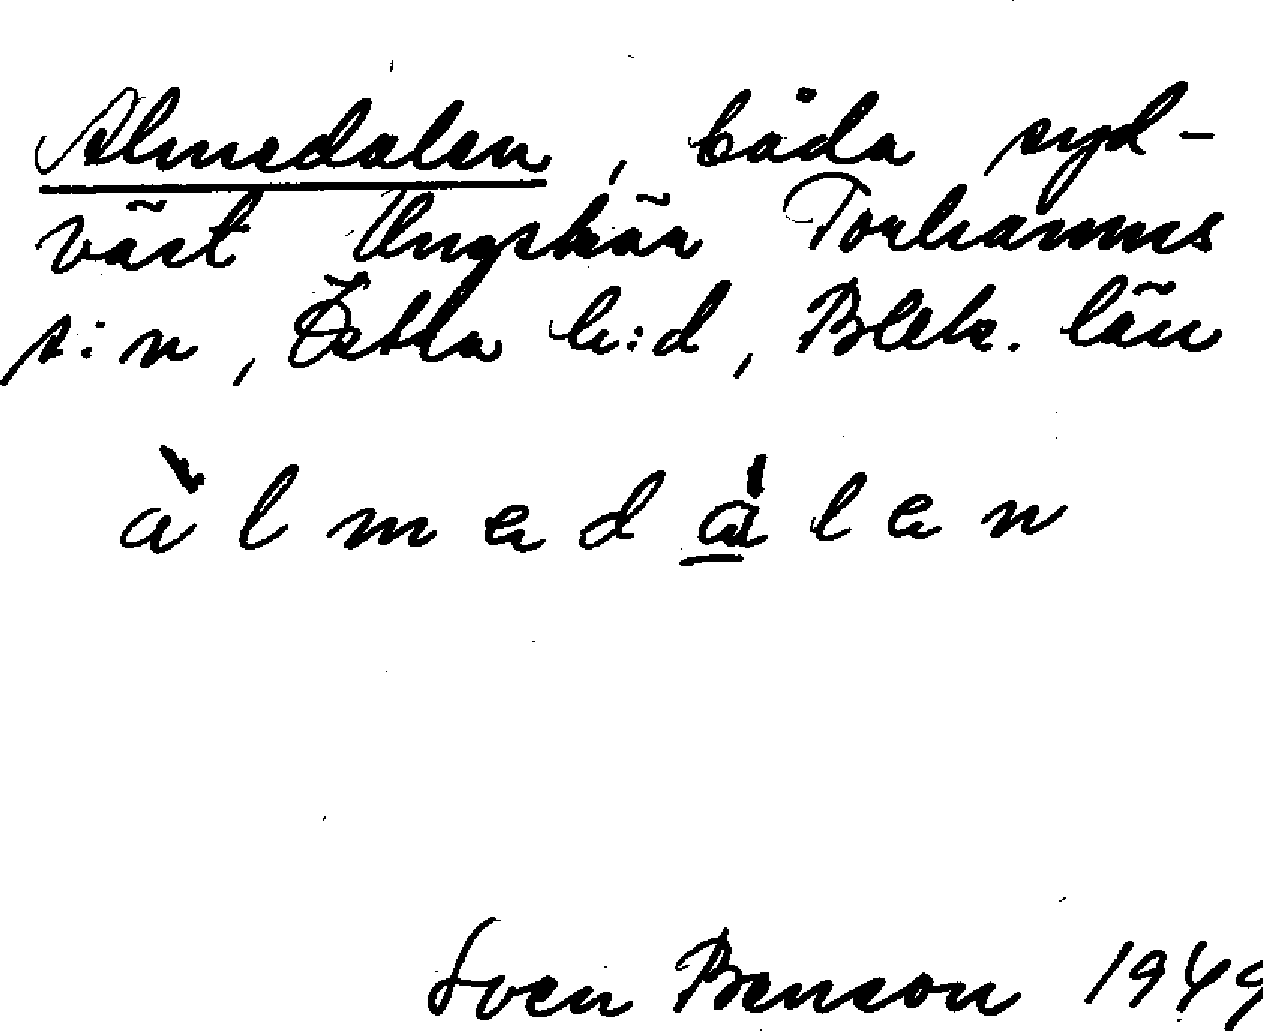 Almedalen, båda syd-
väst Ungskär Torhamns
s:n, Östra h:d, Blek. län
àlmedálen
Sven Benson 1949